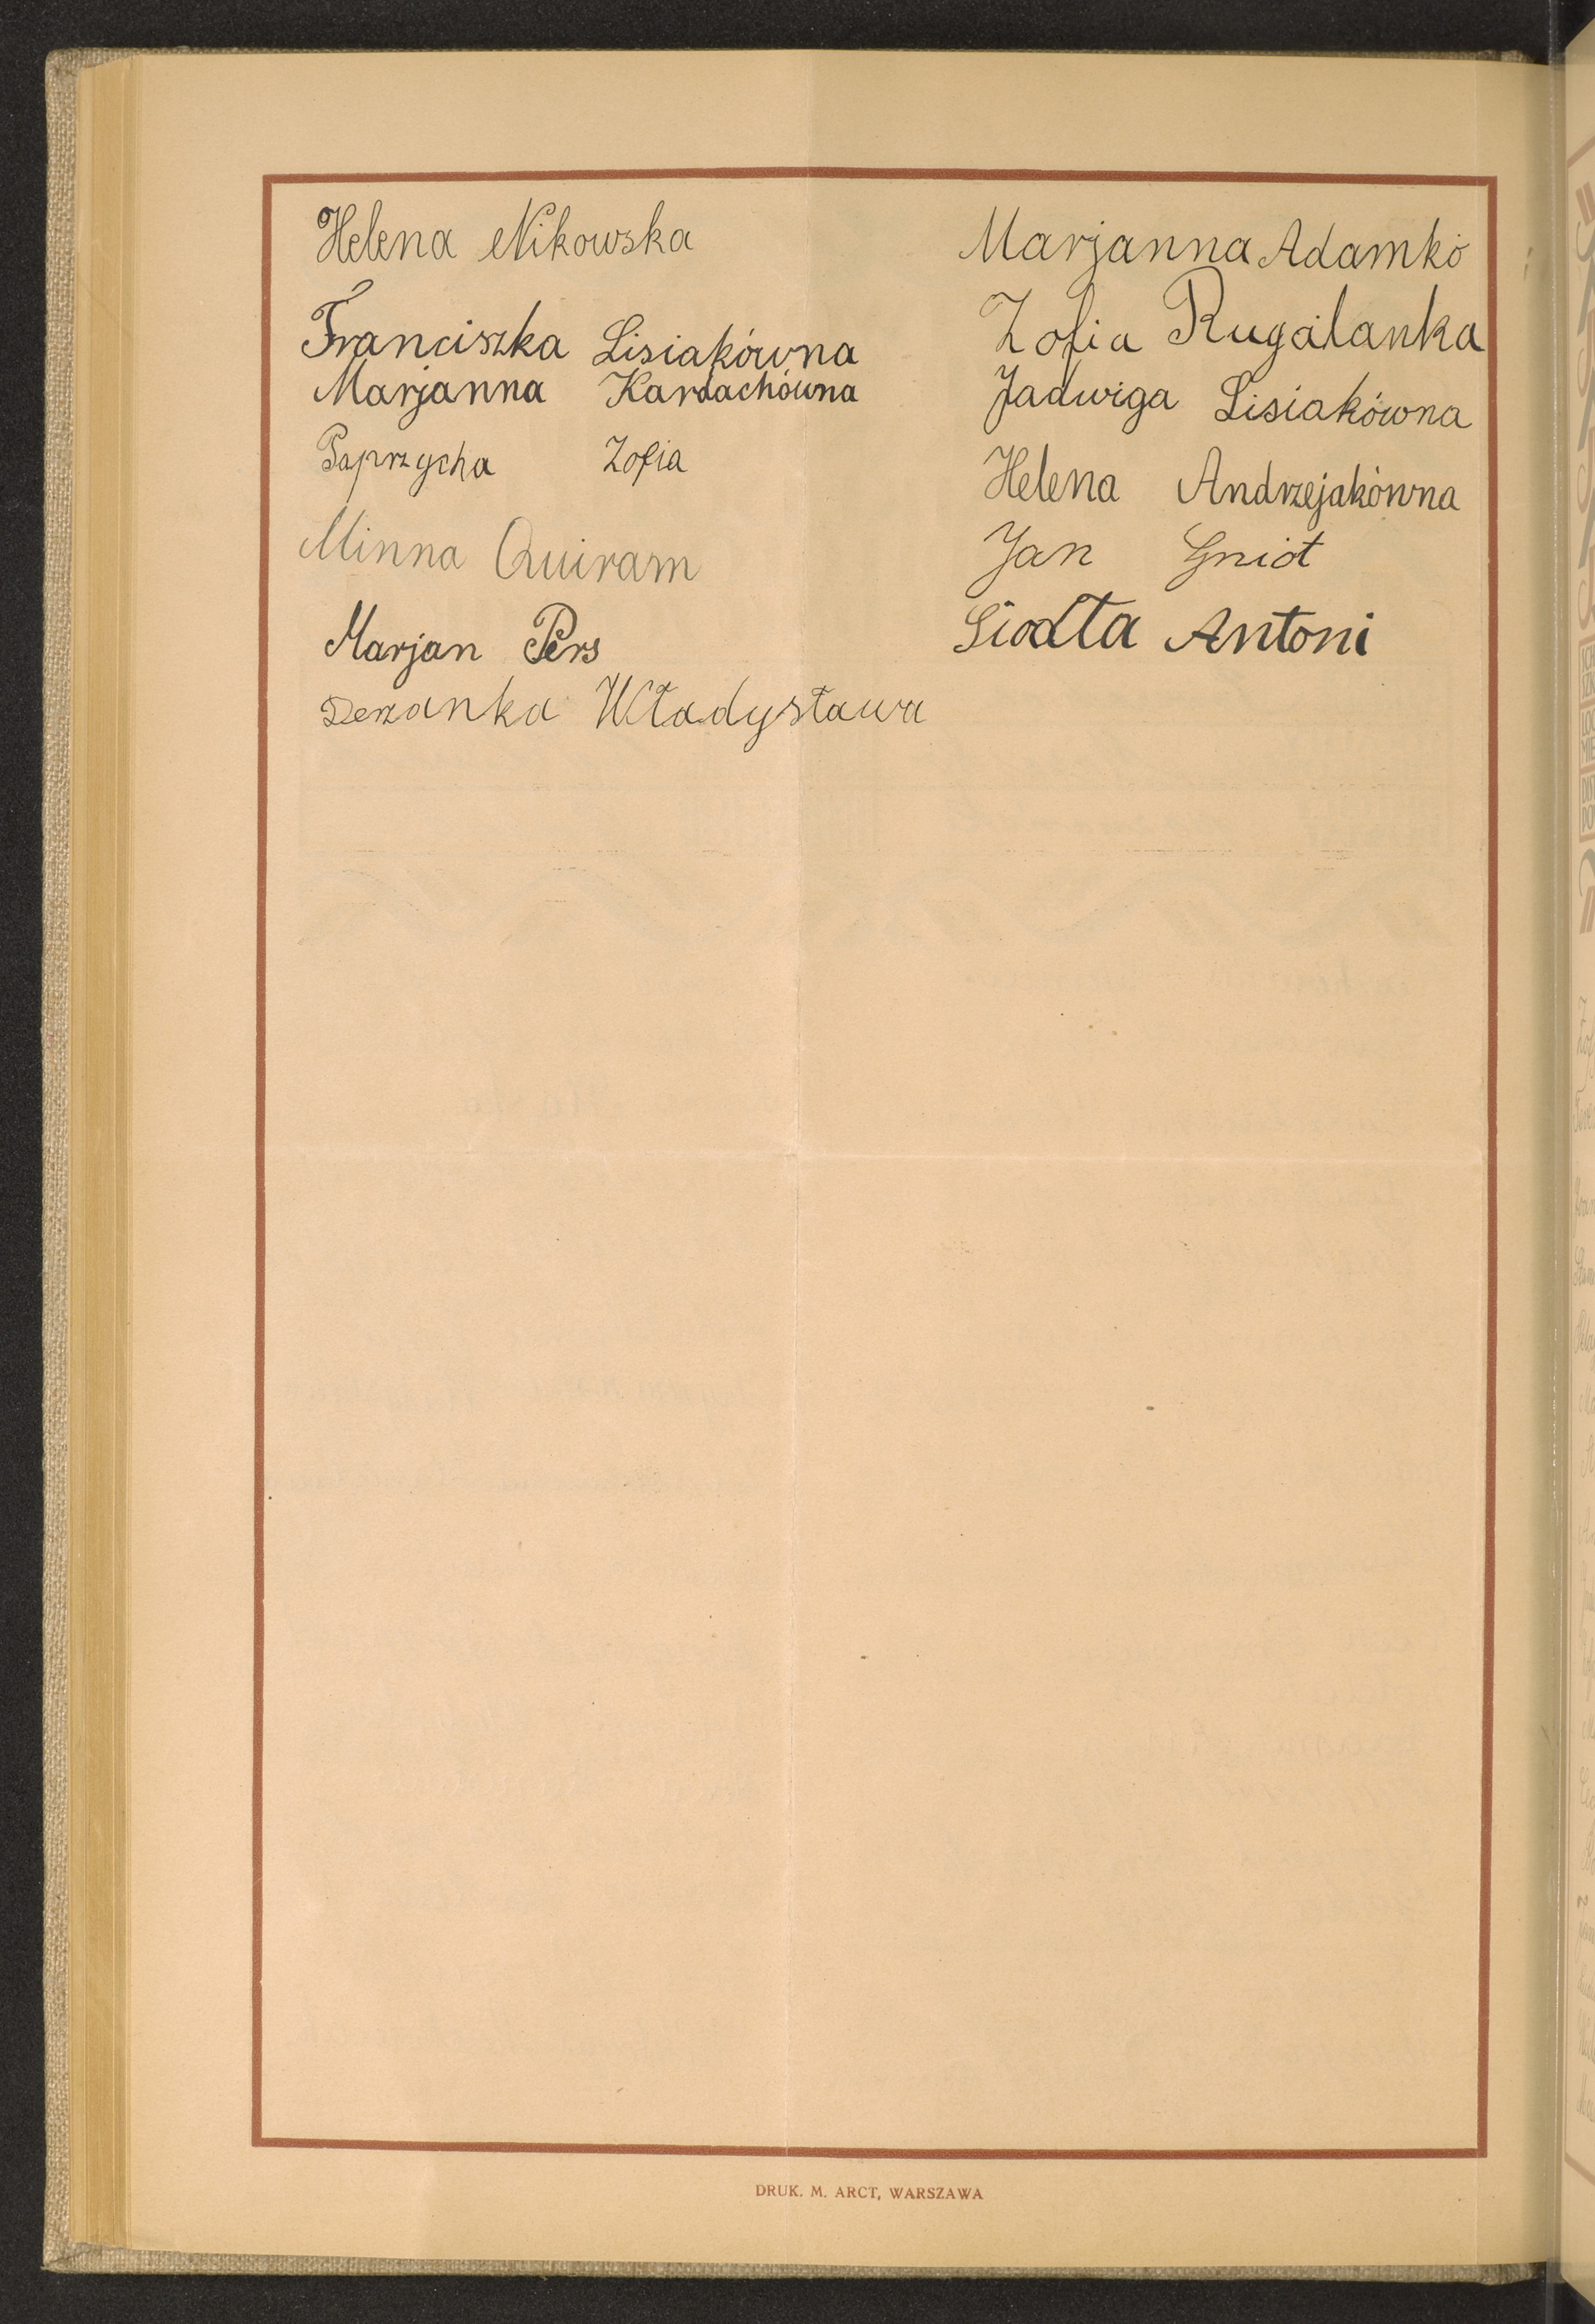 Helena Nikowska
Franciszka Lisiakówna
Marjanna Kardachówna
Paprzycha Zofia
Minna Quiram
Marjan Pers
Władysława
Marjanna Adamko
Zofia Rugalanka
Jadwiga Lisiakówna
Helena Andrzejakówna
Jan Gniot
Siodła Antoni
DRUK. M. ARCT, WARSZAWA